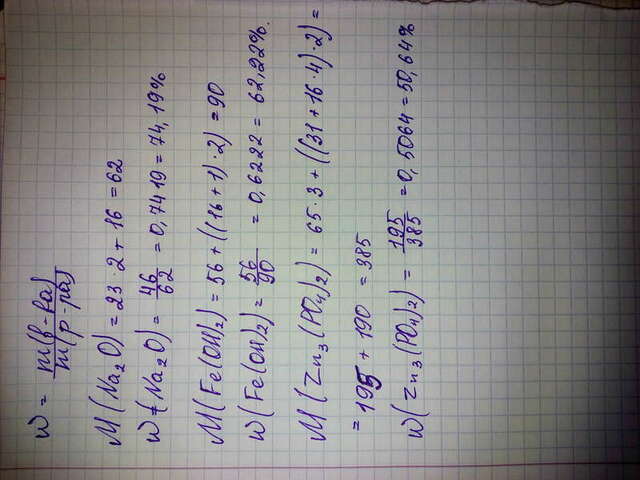 w = m(в-ва) / m(р-ра)
M(Na₂O) = 23·2+16 = 62
w(Na₂O) = 46/62 = 0,7419 = 74,19%
M(Fe(OH)₂) = 56+((16+1)·2) = 90
w(Fe(OH)₂) = 56/90 = 0,6222 = 62,22%.
M(Zn₃(PO₄)₂) = 65·3+((31+16·4)·2) =
= 195 + 190 = 385
w(Zn₃(PO₄)₂) = 195/385 = 0,5064 = 50,64%